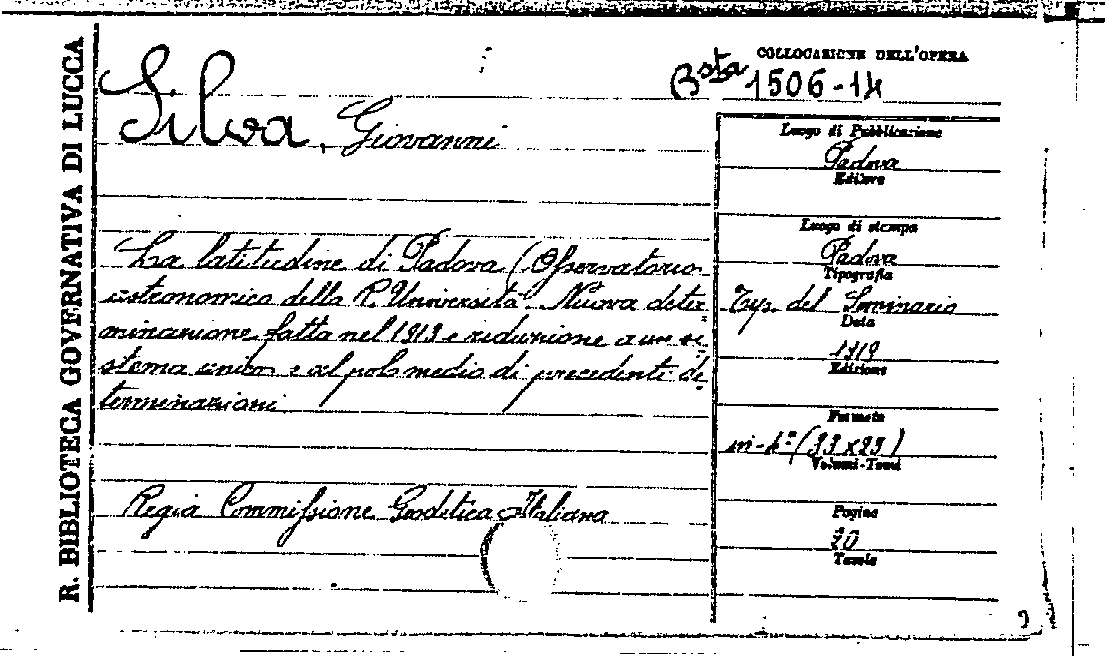 R. BIBLIOTECA GOVERNATIVA DI LUCCA
COLLOCAZIONE DELL'OPERA
Bsta 1506-14
Silva, Giovanni
La latitudine di Padova (Osservatorio
astronomico della R. Università. Nuova deter
minazione fatta nel 1913 e riduzione a un si
stema unico e al polo medio di precedenti de
terminazioni
Regia Commissione Geodetica Italiana
Luogo di Pubblicazione
Padova
Editore
Luogo di stampa
Padova
Tipografia
Typ. del Seminario
Data
1919
Edizione
Formato
in-4º (33x23)
Volumi-Tomi
Pagine
20
Tavole